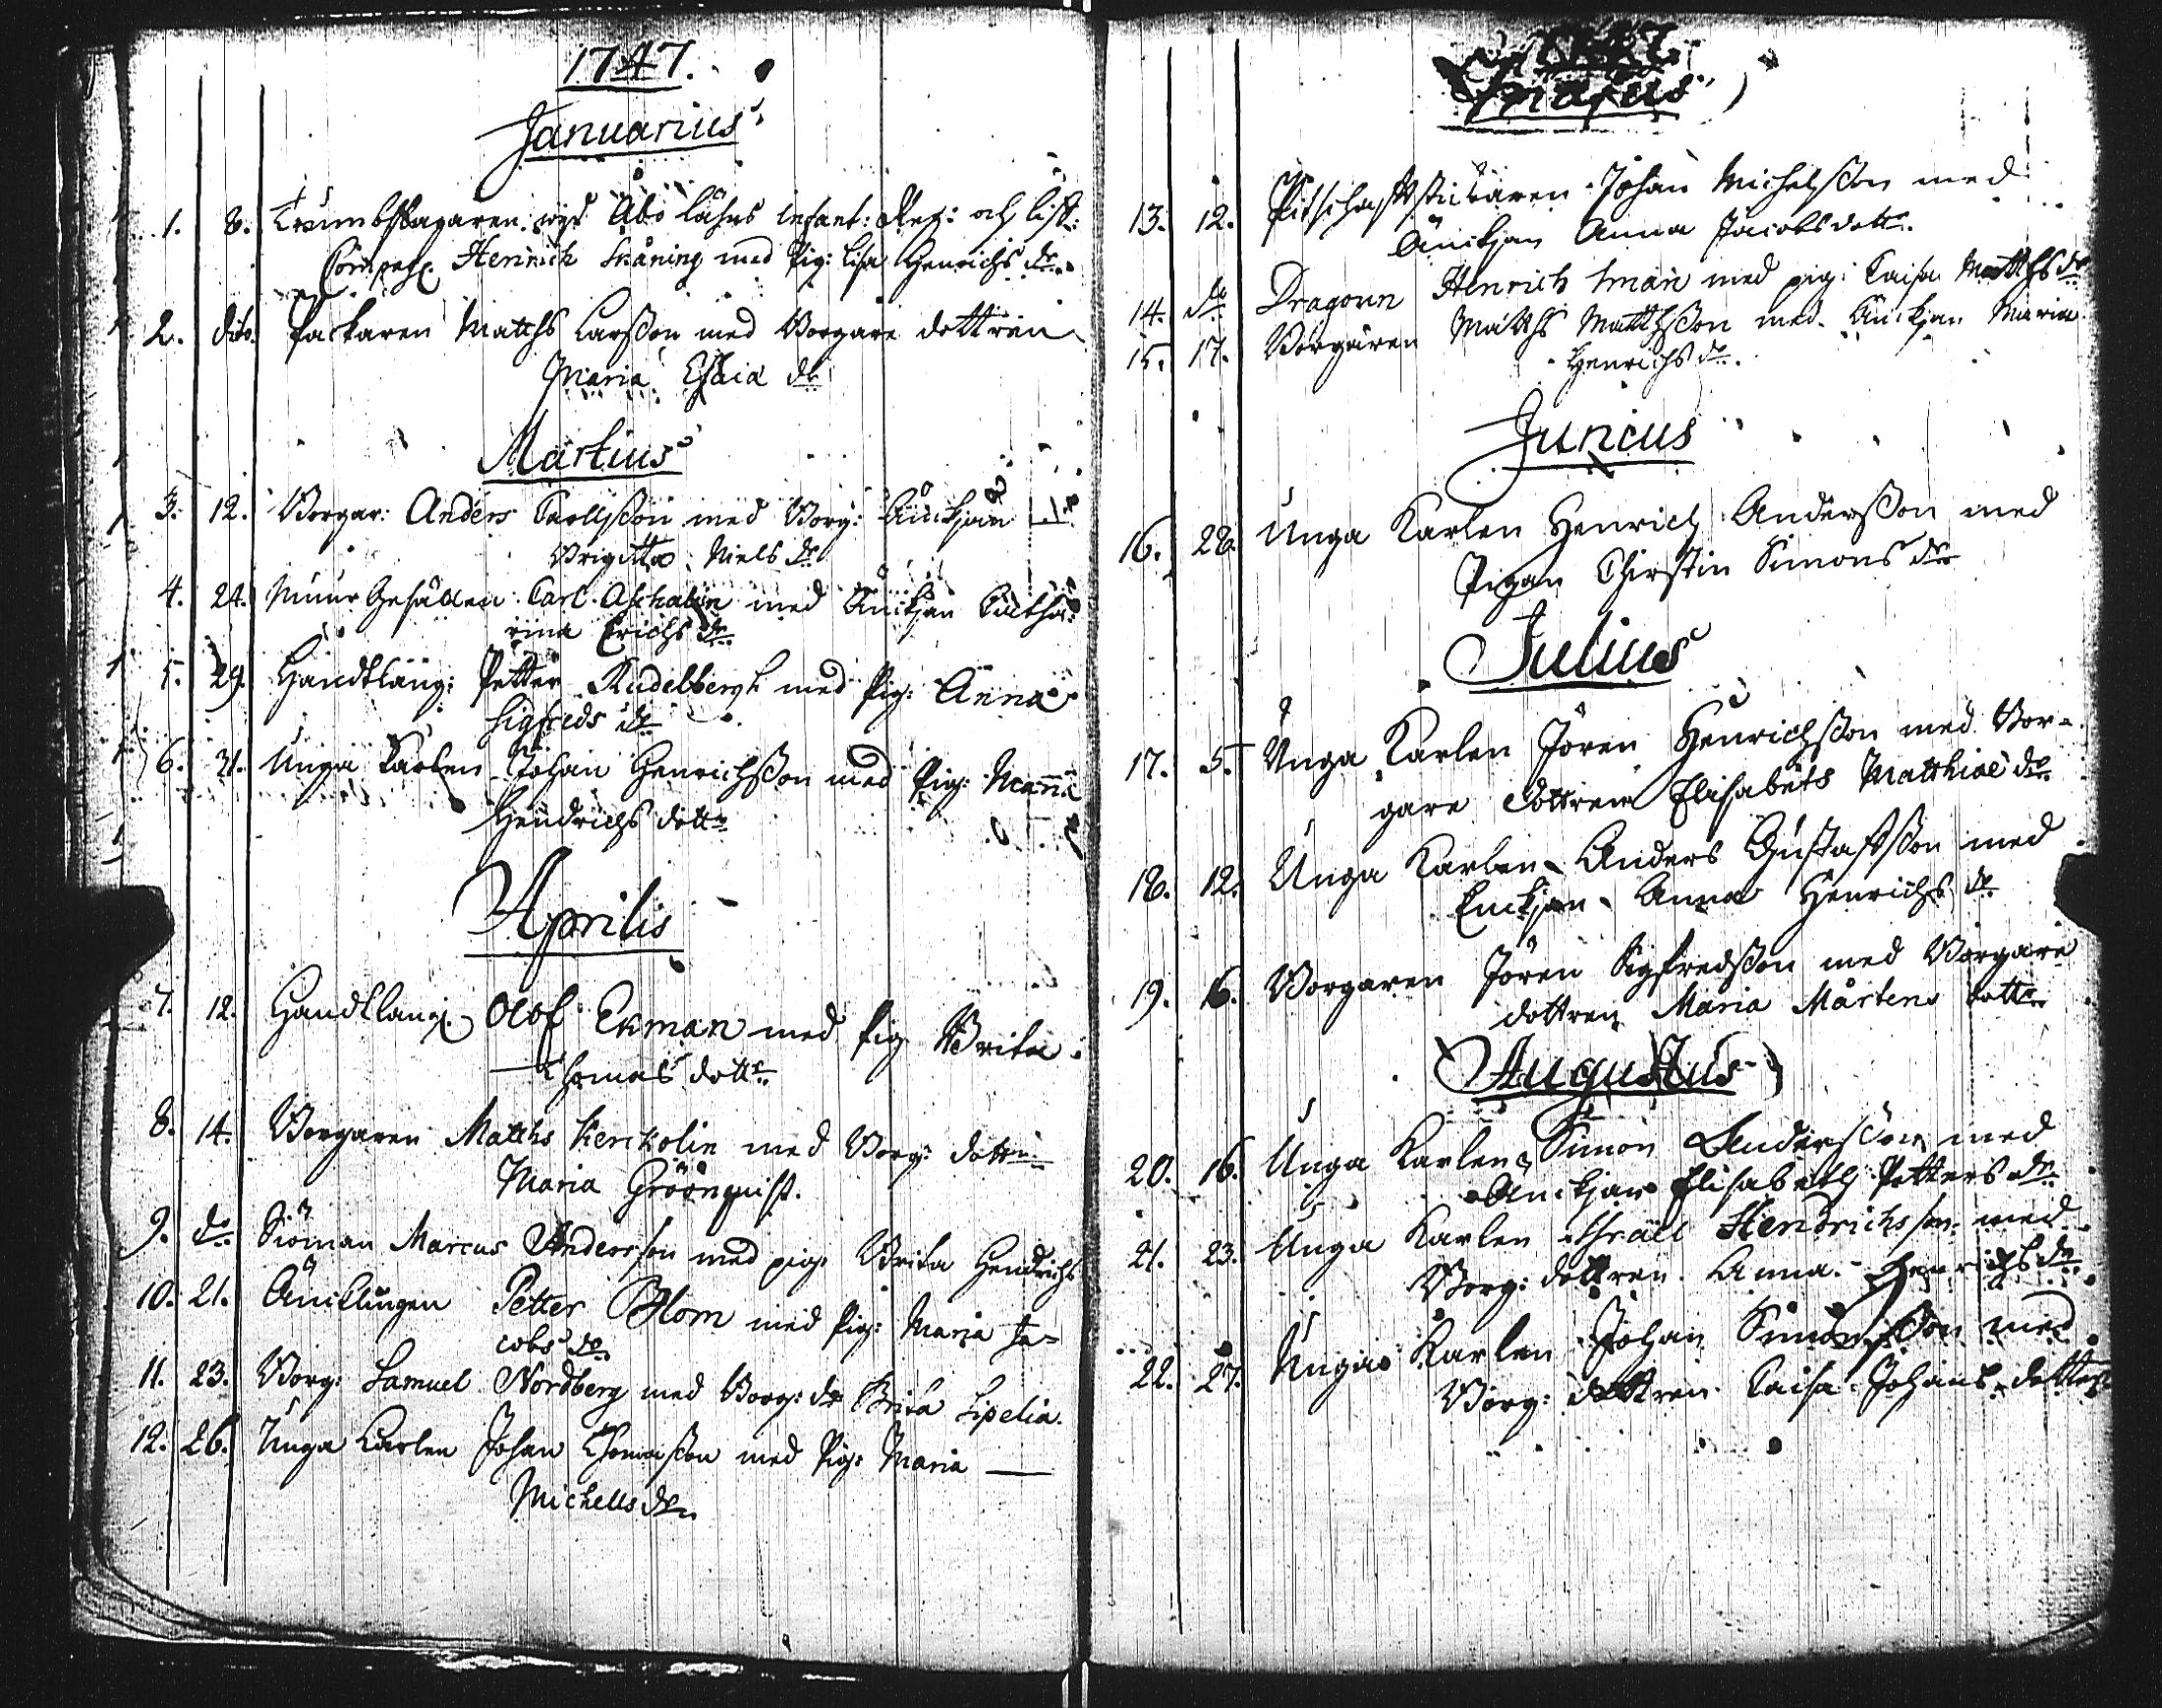 1747.
Januarius
1. 8. Trumbslagaren wyd Åbo lähns infant: Reg: och list:
Compagn. Henrich Snåning med Pig: Lisa Henrichs dr.
2. dito. Packaren Matths Larsson med Borgare dottren
Maria Esaiæ dr
Martius
3. 12. Borgar: Anders Carllsson med Borg: Änckjan
Brigitta Niels dr
4. 24. Muur Gesällen Carl Aschalin med Änckjan Catha=
rina Erichs dr.
5. 29. Handtläng: Petter Rudelbergh med Pig: Anna
Sigfreds dr
6. 31. Unga Karlen Johan Henrichsson med Pig: Maria
Hendrichs dottr
Aprilis
7. 12. Handtlang. Olof Ekman med Pig. Brita
Thomas dottr.
8. 14. Borgaren Matths Kerckolin med Borg: dottr:
Maria Gröönquist.
9. do Siöman Marcus Andersson med pig: Brita Hendrichs
10. 21. Änklingen Petter Blom med Pig: Maria Ja=
cobs dr
11. 23. Borg: Samuel Nordberg med Borg: dr Brita Lipelia.
12. 26. Unga Karlen Johan Thomasson med Pig: Maria —
Michells dr
1747.
Majus
13. 12. Pitschaftstickaren Johan Michelsson med
Änckjan Anna Jacobs dottr.
14. do Dragoun Henrich Sman med pig: Caisa Matths dr
15. 17. Borgaren Matths Matthsson med Änckjan Maria
Henrichs dr.
Junius
16. 28. Unga Karlen Henrich Andersson med
Pigan Chirstin Simons dr
Julius
17. 5. Unga Karlen Jören Henrichsson med Bor=
gare dottren Elisabets Matthiæ dr.
18. 12. Unga Karlen Anders Gustafsson med
Enckjan Anna Henrichs dr.
19. 16. Borgaren Jören Sigfredsson med Borgare
dottren Maria Mårtens dottr
Augustus
20. 16. Unga Karlen Simon Andersson med
Änckjan Elisabeth Petters dr.
21. 23. Unga Karlen Israël Hendrichsson med
Borg: dottren Anna Henrichs dr.
22. 27. Unga Karlen Johan Simonsson med
Borg: dottren Caisa Johans dotter